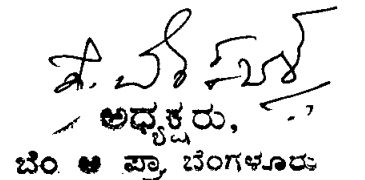 ಅಧ್ಯಕ್ಷರು,
ಬೆಂ ಅ ಪ್ರಾ, ಬೆಂಗಳೂರು